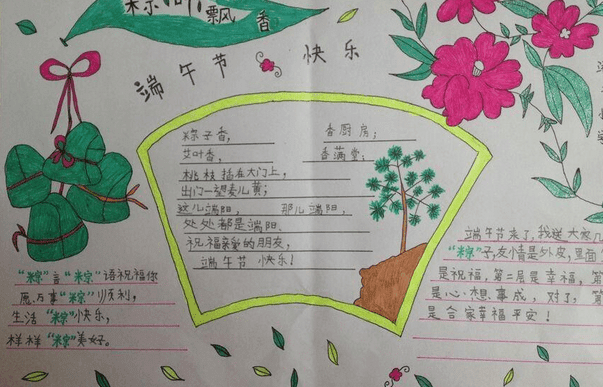 粽叶飘香
端午节 快乐
粽子香, 香厨房;
艾叶香, 香满堂;
桃枝插在大门上,
出门一望麦儿黄;
这儿端阳, 那儿端阳,
处处都是端阳、
祝福亲爱的朋友,
端午节 快乐!
“粽”言“粽”语祝福你
愿万事“粽”顺利,
生活“粽”快乐,
样样“粽”美好。
端午节来了,我送大家几
“粽”子,友情是外皮,里面
是祝福,第二层是幸福,第
是心想事成,对了,第
是合家幸福平安!